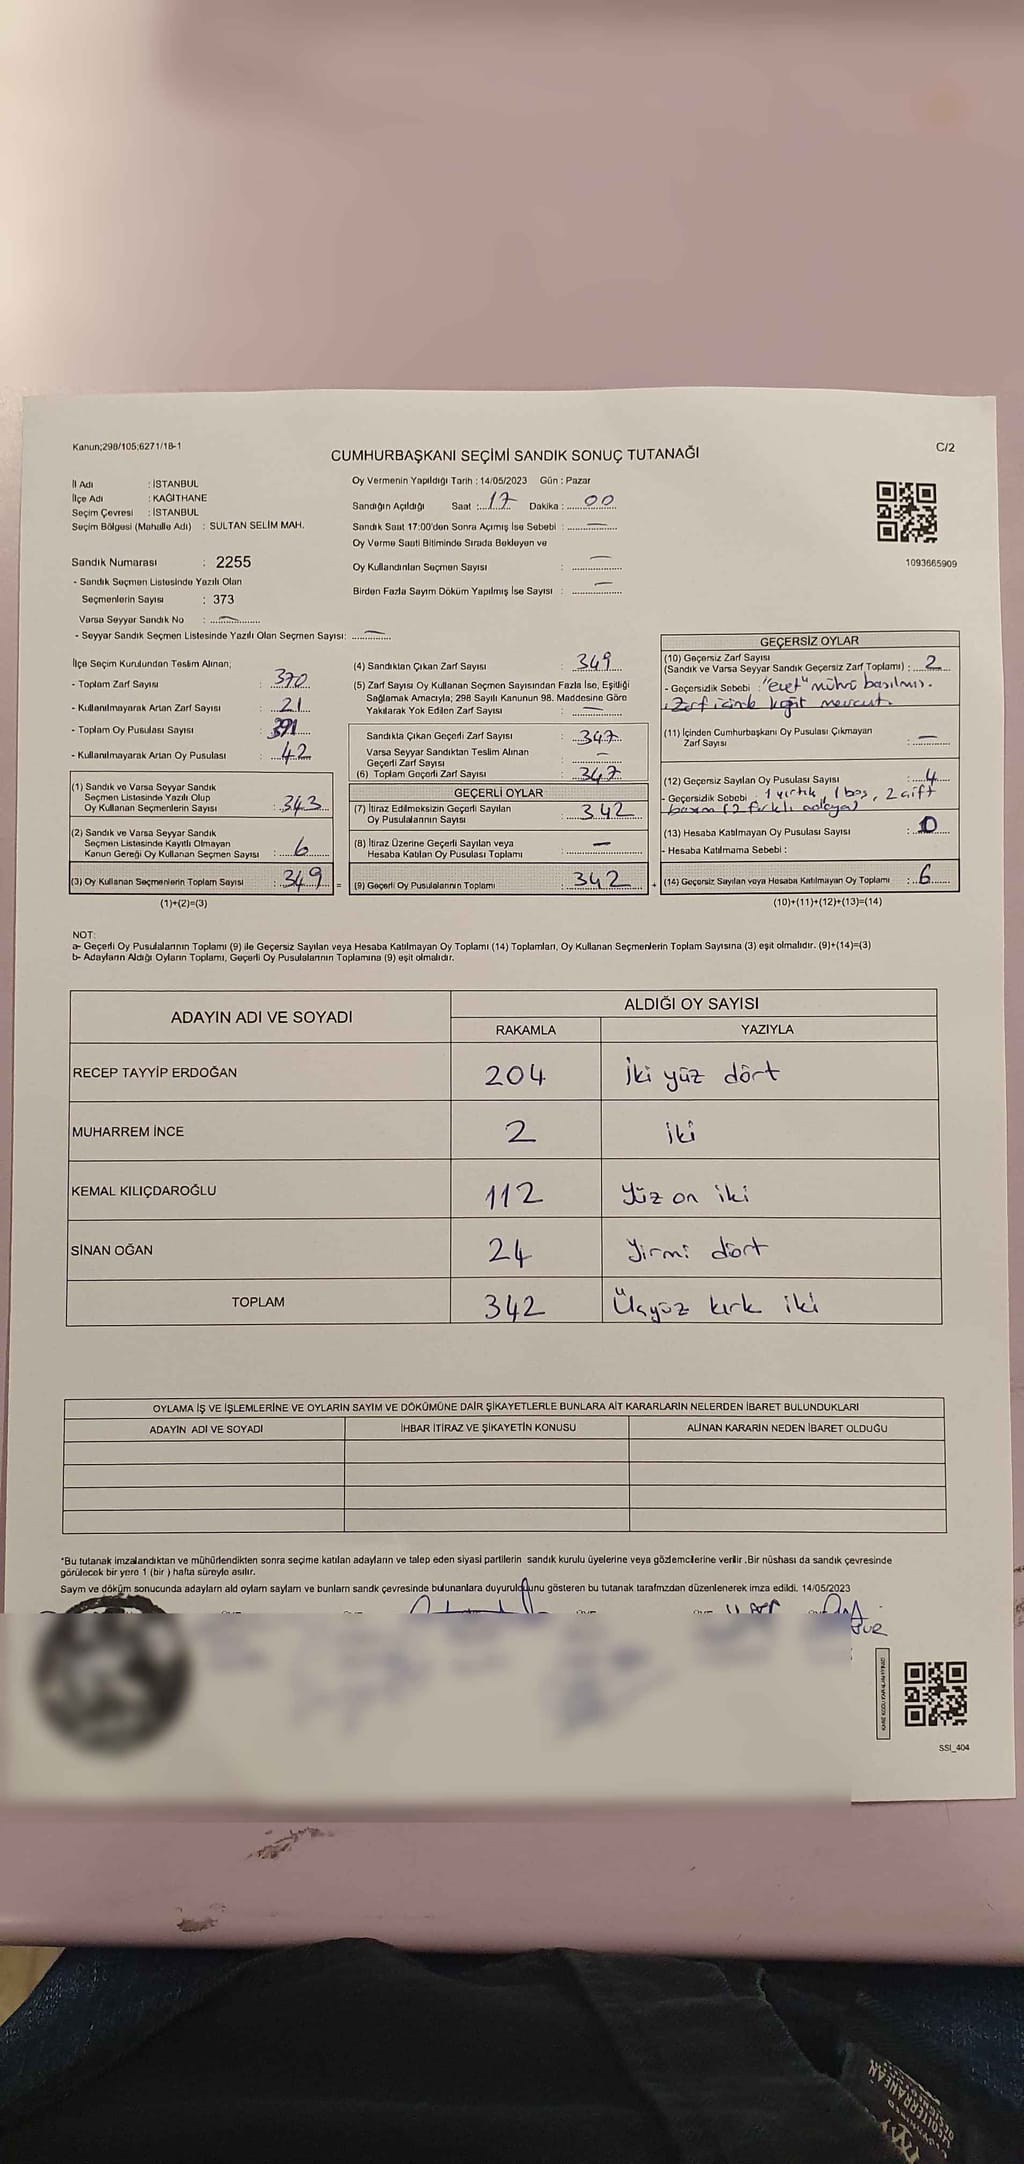 Kanun;298/105;6271/18-1
C/2
CUMHURBAŞKANI SEÇİMİ SANDIK SONUÇ TUTANAĞI
İl Adı : İSTANBUL
İlçe Adı : KAĞITHANE
Seçim Çevresi : İSTANBUL
Seçim Bölgesi (Mahalle Adı) : SULTAN SELİM MAH.
Sandık Numarası : 2255
- Sandık Seçmen Listesinde Yazılı Olan
Seçmenlerin Sayısı : 373
Varsa Seyyar Sandık No : —
- Seyyar Sandık Seçmen Listesinde Yazılı Olan Seçmen Sayısı: —
Oy Vermenin Yapıldığı Tarih : 14/05/2023 Gün : Pazar
Sandığın Açıldığı Saat : 17 Dakika : 00
Sandık Saat 17:00'den Sonra Açımış İse Sebebi : —
Oy Verme Saati Bitiminde Sırada Bekleyen ve
Oy Kullandırılan Seçmen Sayısı : —
Birden Fazla Sayım Döküm Yapılmış İse Sayısı : —
1093665909
İlçe Seçim Kurulundan Teslim Alınan;
- Toplam Zarf Sayısı : 370
- Kullanılmayarak Artan Zarf Sayısı : 21
- Toplam Oy Pusulası Sayısı : 391
- Kullanılmayarak Artan Oy Pusulası : 42
(1) Sandık ve Varsa Seyyar Sandık
Seçmen Listesinde Yazılı Olup
Oy Kullanan Seçmenlerin Sayısı : 343
(2) Sandık ve Varsa Seyyar Sandık
Seçmen Listesinde Kayıtlı Olmayan
Kanun Gereği Oy Kullanan Seçmen Sayısı : 6
(3) Oy Kullanan Seçmenlerin Toplam Sayısı : 349 =
(1)+(2)=(3)
(4) Sandıktan Çıkan Zarf Sayısı : 349
(5) Zarf Sayısı Oy Kullanan Seçmen Sayısından Fazla İse, Eşitliği
Sağlamak Amacıyla; 298 Sayılı Kanunun 98. Maddesine Göre
Yakılarak Yok Edilen Zarf Sayısı : —
Sandıkta Çıkan Geçerli Zarf Sayısı : 347
Varsa Seyyar Sandıktan Teslim Alınan
Geçerli Zarf Sayısı : —
(6) Toplam Geçerli Zarf Sayısı : 347
GEÇERLİ OYLAR
(7) İtiraz Edilmeksizin Geçerli Sayılan
Oy Pusulalarının Sayısı : 342
(8) İtiraz Üzerine Geçerli Sayılan veya
Hesaba Katılan Oy Pusulası Toplamı : —
(9) Geçerli Oy Pusulalarının Toplamı : 342 +
GEÇERSİZ OYLAR
(10) Geçersiz Zarf Sayısı
(Sandık ve Varsa Seyyar Sandık Geçersiz Zarf Toplamı) : 2
- Geçersizlik Sebebi : "evet" mührü basılmış.
Zarf içinde kağıt mevcut.
(11) İçinden Cumhurbaşkanı Oy Pusulası Çıkmayan
Zarf Sayısı : —
(12) Geçersiz Sayılan Oy Pusulası Sayısı : 4
- Geçersizlik Sebebi : 1 yırtık, 1 boş, 2 çift
basım (2 farklı adaya)
(13) Hesaba Katılmayan Oy Pusulası Sayısı : 0
- Hesaba Katılmama Sebebi :
(14) Geçersiz Sayılan veya Hesaba Katılmayan Oy Toplamı : 6
(10)+(11)+(12)+(13)=(14)
NOT:
a- Geçerli Oy Pusulalarının Toplamı (9) ile Geçersiz Sayılan veya Hesaba Katılmayan Oy Toplamı (14) Toplamları, Oy Kullanan Seçmenlerin Toplam Sayısına (3) eşit olmalıdır. (9)+(14)=(3)
b- Adayların Aldığı Oyların Toplamı, Geçerli Oy Pusulalarının Toplamına (9) eşit olmalıdır.
ADAYIN ADI VE SOYADI ALDIĞI OY SAYISI
RAKAMLA YAZIYLA
RECEP TAYYİP ERDOĞAN 204 İki yüz dört
MUHARREM İNCE 2 iki
KEMAL KILIÇDAROĞLU 112 Yüz on iki
SİNAN OĞAN 24 Yirmi dört
TOPLAM 342 Üçyüz kırk iki
OYLAMA İŞ VE İŞLEMLERİNE VE OYLARIN SAYIM VE DÖKÜMÜNE DAİR ŞİKAYETLERLE BUNLARA AİT KARARLARIN NELERDEN İBARET BULUNDUKLARI
ADAYIN ADI VE SOYADI İHBAR İTİRAZ VE ŞİKAYETİN KONUSU ALINAN KARARIN NEDEN İBARET OLDUĞU
*Bu tutanak imzalandıktan ve mühürlendikten sonra seçime katılan adayların ve talep eden siyasi partilerin sandık kurulu üyelerine veya gözlemcilerine verilir .Bir nüshası da sandık çevresinde
görülecek bir yere 1 (bir ) hafta süreyle asılır.
Sayım ve döküm sonucunda adayların aldı oyların sayları ve bunların sandk çevresinde bulunanlara duyurulduğunu gösteren bu tutanak tarafımzdan düzenlenerek imza edildi. 14/05/2023
SSI_404
MEDITERRANEAN